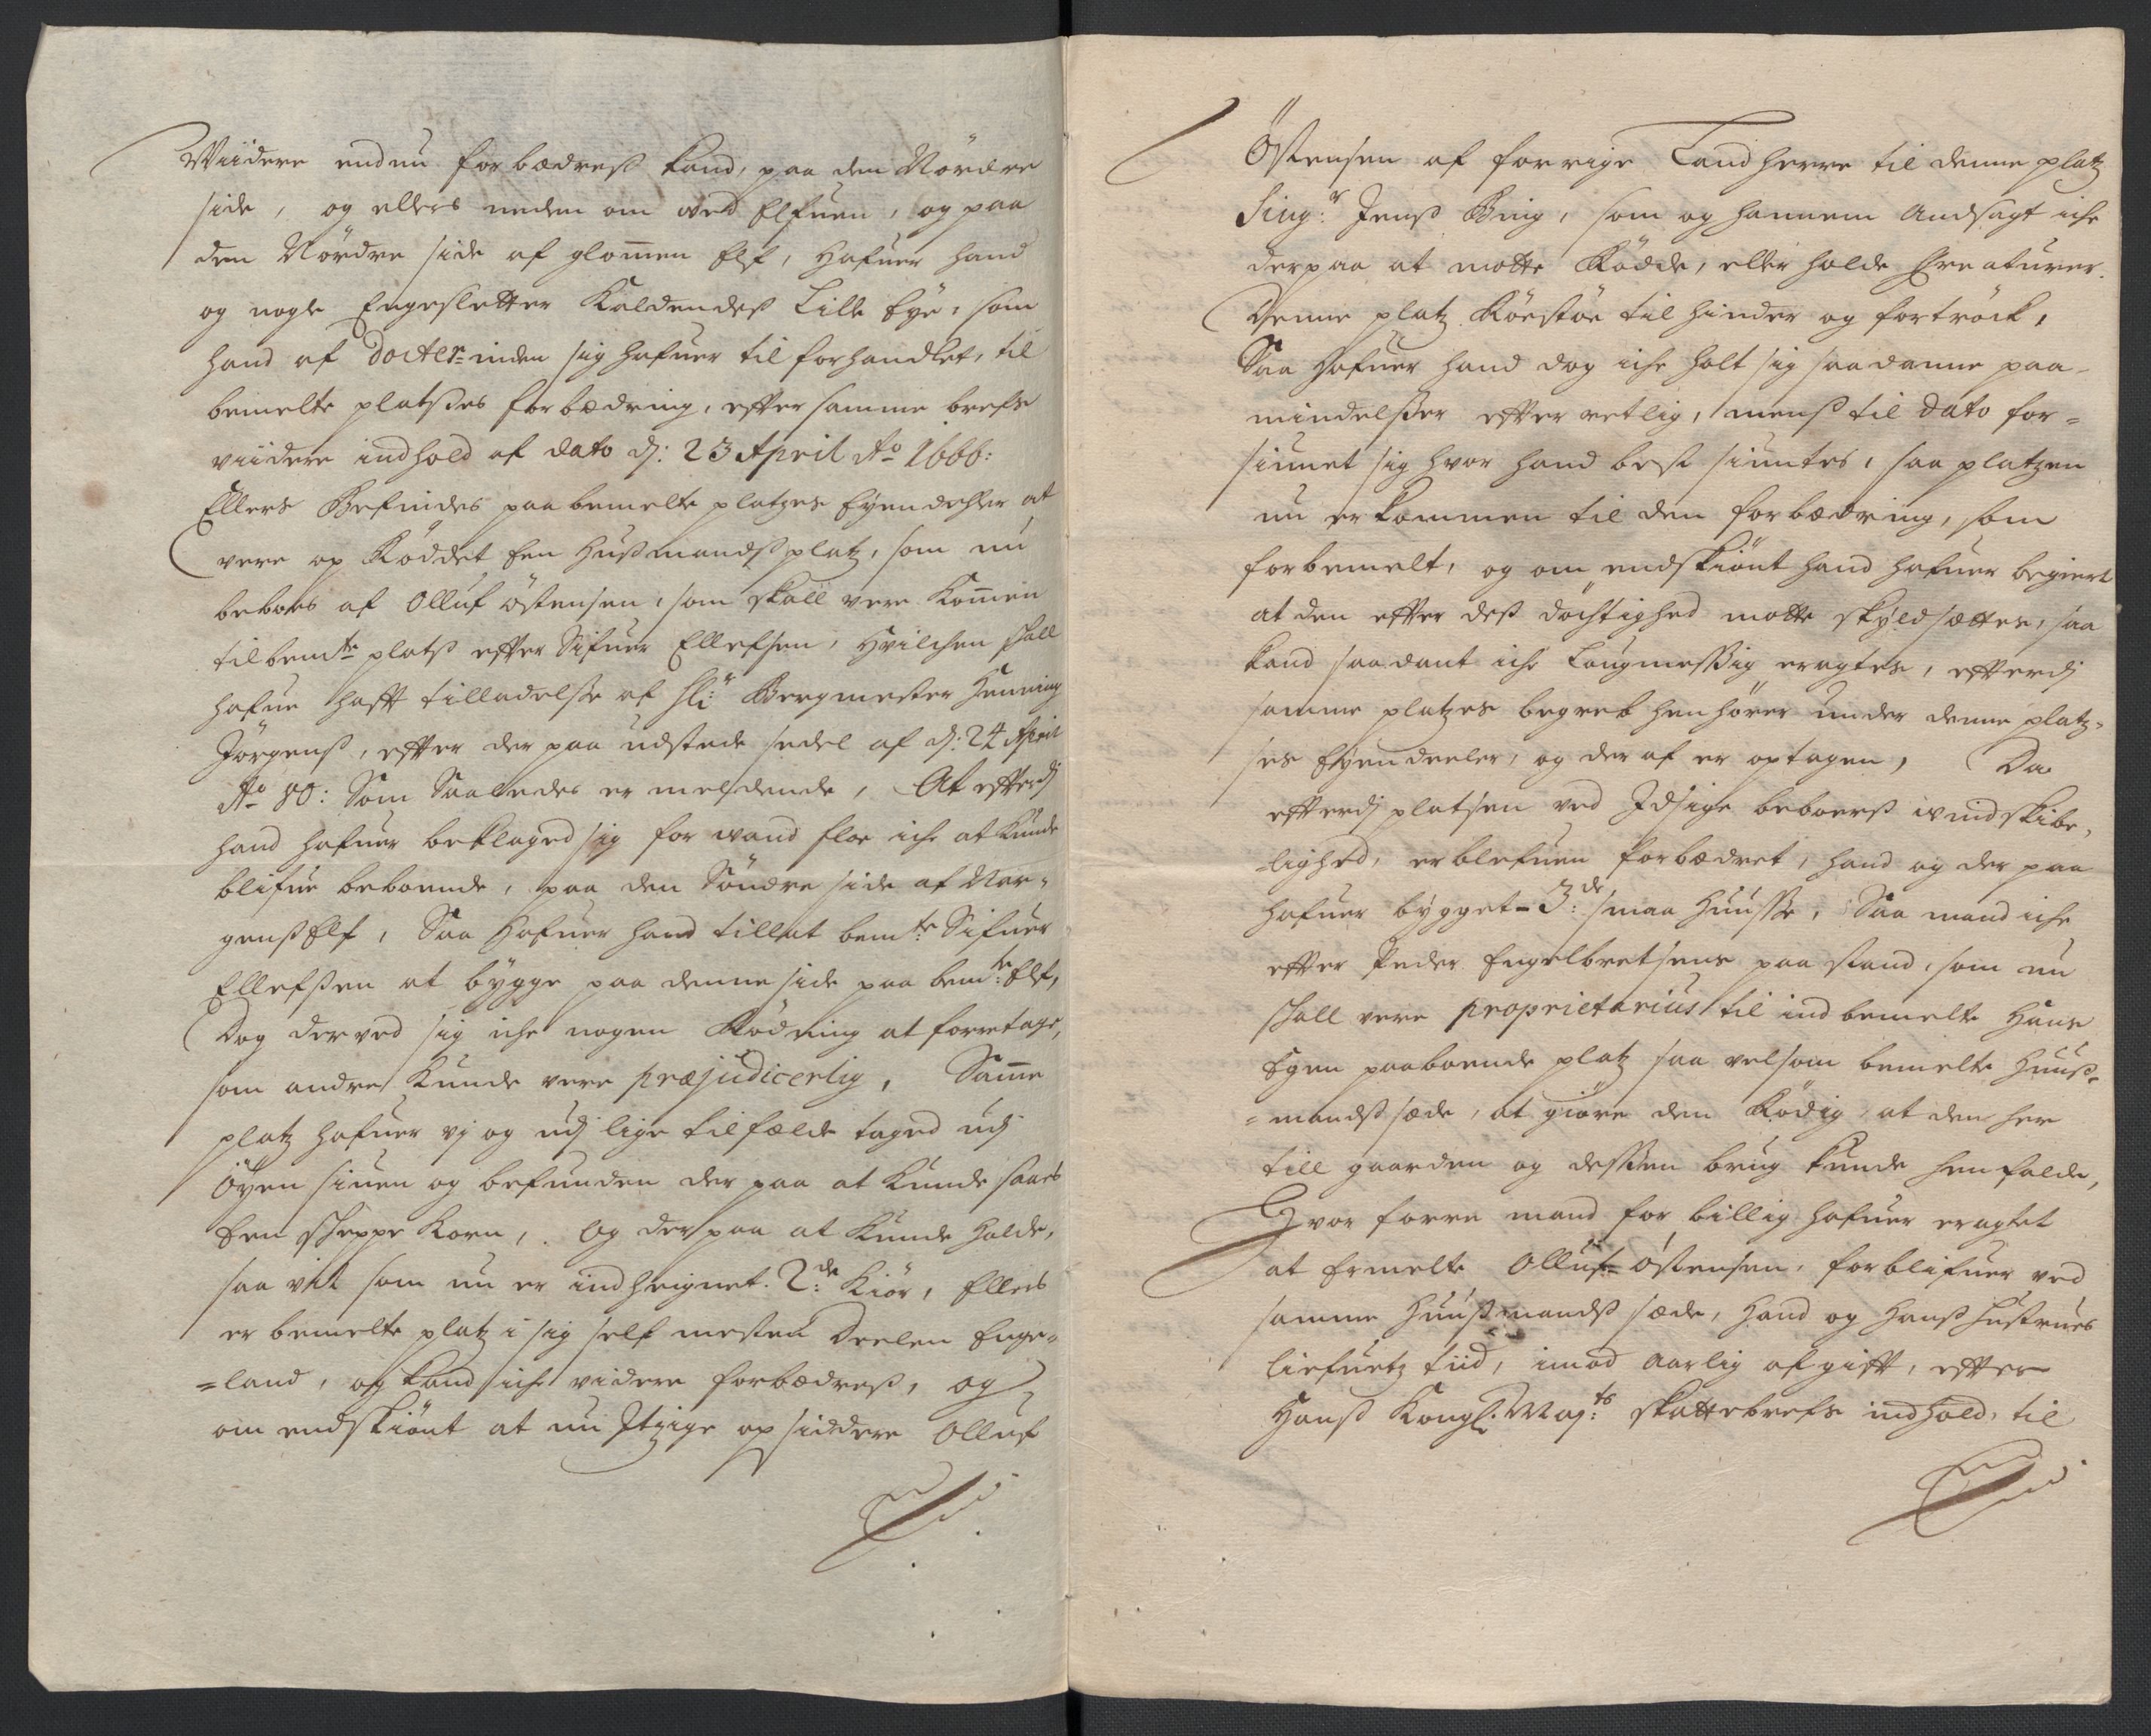 Wiidere endnu forbædreß kand, paa den Nördre
side, og ellers neden om ved Elfuen, og paa
den Nördre side af glom̄en Elf, hafuer hand
og nogle Engesletter Kaldendeß Lille Eye, som
hand af Docter-inden sig hafuer til forhandlet, til
bemelte platzes forbædring, effter samme brefs
viidere indhold af dato d: 23 April Ao 1666:
Ellers Befindes paa bemelte platzes Eyendehler at
vere op Röddet Een Hußmandßplatz, som nu
beboes af Olluf Östensen, som skall vere Kom̄en
til bemte plats effter Sifuer Ellefsen, hvilchen skall
hafue hafft tilladelsse af Sl: Bergmester Henning
Jörgenß, effter der paa udstede sedel af d: 24 April
Ao 80: Som Saaledes er meldende, At efterdj
hand hafuer beklaged sig for vand floe iche at kunde
blifue beboende, paa den Söndre side af Nor-
genß Elf, Saa hafuer hand tillat bemte Sifuer
Ellefssen at bygge paa denne side paa bemte: Elf,
Dog derved sig iche nogen Rödning at forretage,
som andre Kunde vere præjudicerlig, Sam̄e
platz hafuer vj og udj lige tilfælde taged udj
Öyen siuen og befunden der paa at Kunde saaes
Een skeppe Korn, Og der paa at Kunde holde,
saa vit som nu er indheignet. 2de: Kiör, Ellers
er bemelte platz i sig self mesten Deelen Enge-
=land, og kand iche videre forbædreß, og
om endskiönt at nu Itzige opsiddere Olluf
Östensen af forrige Landherre til denne platz
Sing:r Jenß Bing, som og hannem Andsagt iche
derpaa at motte Rödde, eller holde Creaturer.
Denne platz Röestöe til hinder og fortröck,
Saa hafuer hand dog iche holt sig saadanne paa-
mindelsser effter retlig, menß til dato for-
siunet sig hvor hand best siuntes, saa platzen
nu er kommen til den forbædring, som
forbemelt, og om endskiönt hand hafuer begiert
at den effter deß döchtighed motte skyldsættes, saa
kand saadant iche Laugmessig eragtes, efterdj
samme platzes begreb henhörer under denne platz-
ses Eyendeeler, og der af er optagen, Da
efterdj platsen ved Idsige beboerß windskibe-
-lighed, er blefuen forbædret, hand og der paa
hafuer bygget 3:de smaa Huusse, Saa mand iche
effter Peder Engelbretsens paa stand, som nu
skall vere proprietarius til ind bemelte Hans
Egen paaboende platz saa velsom bemelte Huuß-
=mandß sæde, at giöre den Rödig, at den her
till gaarden og dessen brug kunde henfalde,
Hvor forre mand for billig hafuer eragtet
at Ermelte Olluf Östensen, forblifuer ved
samme Huußmandß sæde, hand og hanß Hustrues
Liefuetz tiid, imod aarlig afgifft, effter
Hanß Kongl: Maj:ts skattebrefs indhold, til